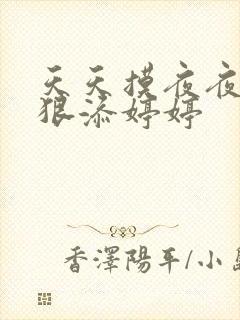 天天摸夜夜
狠添婷婷
香澤陽平/小